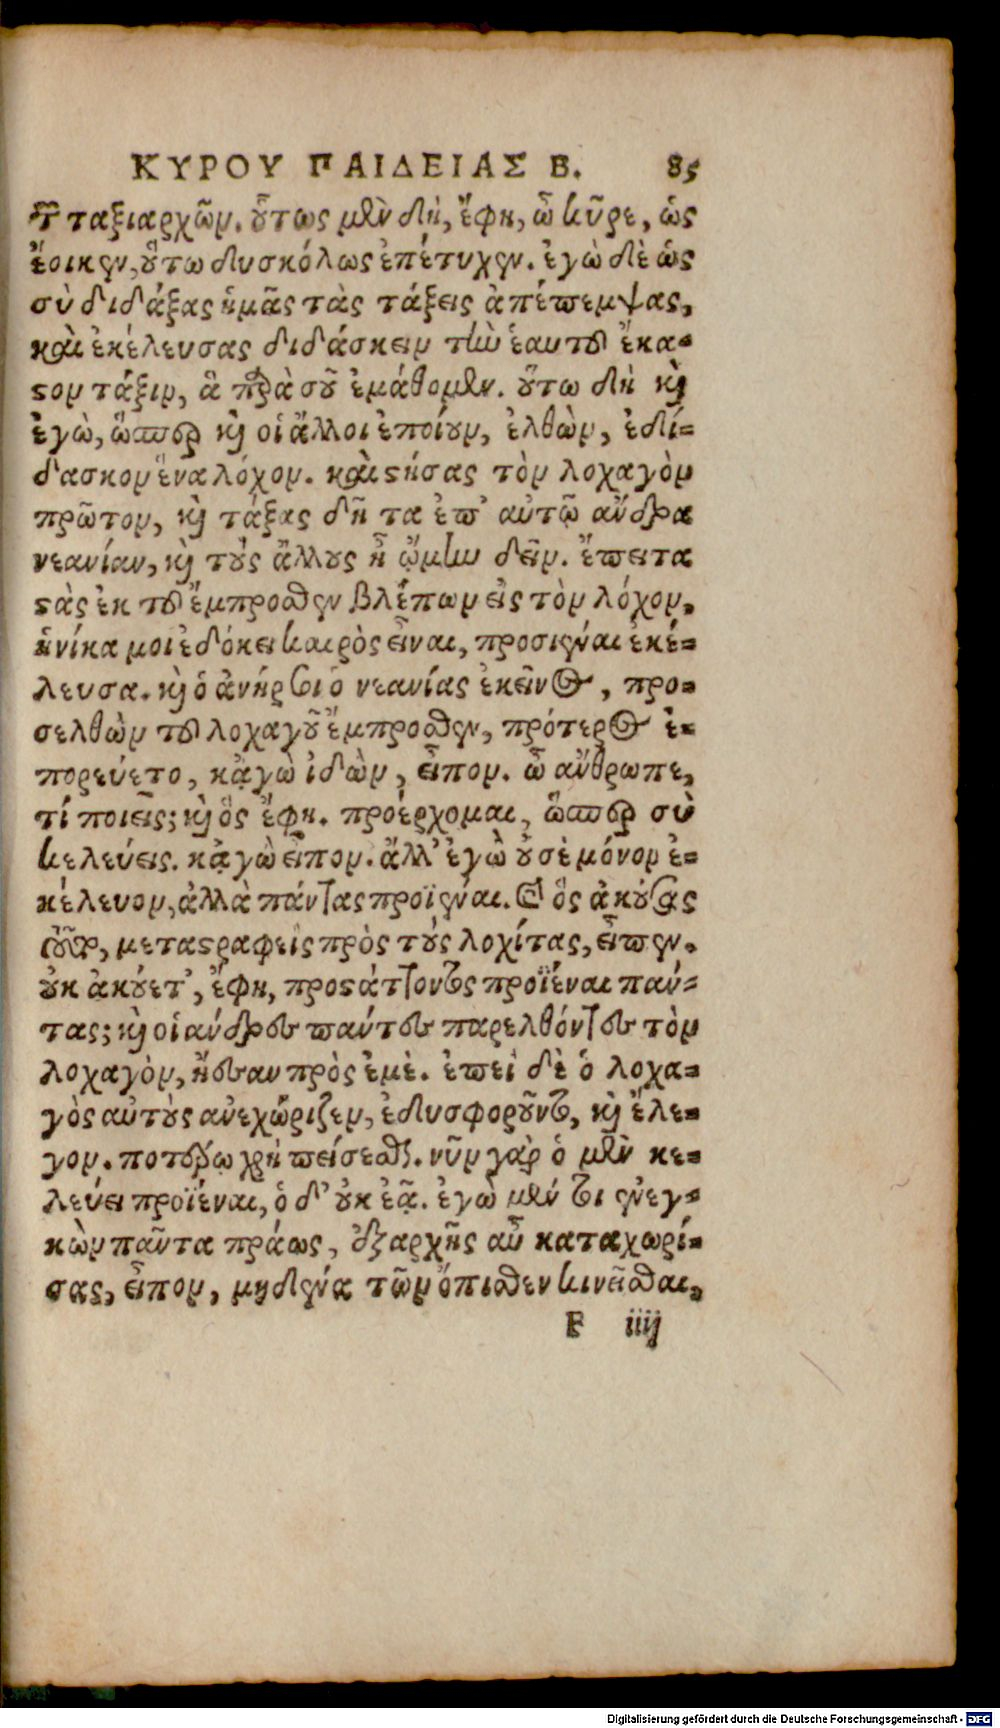 ΚΥΡΟΥ ΠΑΙΔΕΙΑΣ Β. 85
τῶν ταξιαρχῶν. οὗτως μὲν δὴ, ἔφη, ὦ κῦρε, ὡς
ἔοικεν, οὕτω δυσκόλως ἐπέτυχεν. ἐγὼ δὲ ὡς
σὺ διδάξας ἡμᾶς τὰς τάξεις ἀπέπεμψας,
καὶ ἐκέλευσας διδάσκειν τὴν ἑαυτοῦ ἕκα-
στον τάξιν, ἃ παρὰ σοῦ ἐμάθομεν. οὕτω δὴ καὶ
ἐγὼ, ὥσπερ καὶ οἱ ἄλλοι ἐποίουν, ἐλθὼν, ἐδί-
δασκον ἕνα λόχον. καὶ στήσας τὸν λοχαγὸν
πρῶτον, καὶ τάξας δῆ τα ἐπ' αὐτῷ ἄνδρα
νεανίαν, καὶ τοὺς ἄλλους ᾗ ᾤμην δεῖν. ἔπειτα
στὰς ἐκ τοῦ ἔμπροσθεν βλέπων εἰς τὸν λόχον,
ἡνίκα μοι ἐδόκει καιρὸς εἶναι, προσιέναι ἐκέ-
λευσα. καὶ ὁ ἀνήρ σοι ὁ νεανίας ἐκεῖνος, προ-
σελθὼν τοῦ λοχαγοῦ ἔμπροσθεν, πρότερος ἐ-
πορεύετο, κᾀγὼ ἰδὼν, εἶπον. ὦ ἄνθρωπε,
τί ποιεῖς; καὶ ὃς ἔφη. προέρχομαι, ὥσπερ σὺ
κελεύεις. κᾀγὼ εἶπον. ἄλλ' ἐγὼ οὐ σὲ μόνον ἐ-
κέλευον, ἀλλὰ πάντας προϊέναι. καὶ ὃς ἀκούσας
τοῦτο, μεταστραφεὶς πρὸς τοὺς λοχίτας, εἶπεν.
οὐκ ἀκούετ', ἔφη, προστάττοντος προϊέναι πάν-
τας; καὶ οἱ ἄνδρες πάντες παρελθόντες τὸν
λοχαγὸν, ἤεσαν πρὸς ἐμὲ. ἐπεὶ δὲ ὁ λοχα-
γὸς αὐτοὺς ἀνεχώριζεν, ἐδυσφοροῦντο, καὶ ἔλε-
γον. ποτέρῳ χρὴ πείσεσθαι. νῦν γὰρ ὁ μὲν κε-
λεύει προϊέναι, ὁ δ' οὐκ ἐᾷ. ἐγὼ μέν τοι ἐνεγ-
κὼν πάντα πράως, ἐξαρχῆς αὖ καταχωρί-
σας, εἶπον, μηδένα τῶν ὄπισθεν κινεῖσθαι,
F iiij
Digitalisierung gefördert durch die Deutsche Forschungsgemeinschaft - DFG